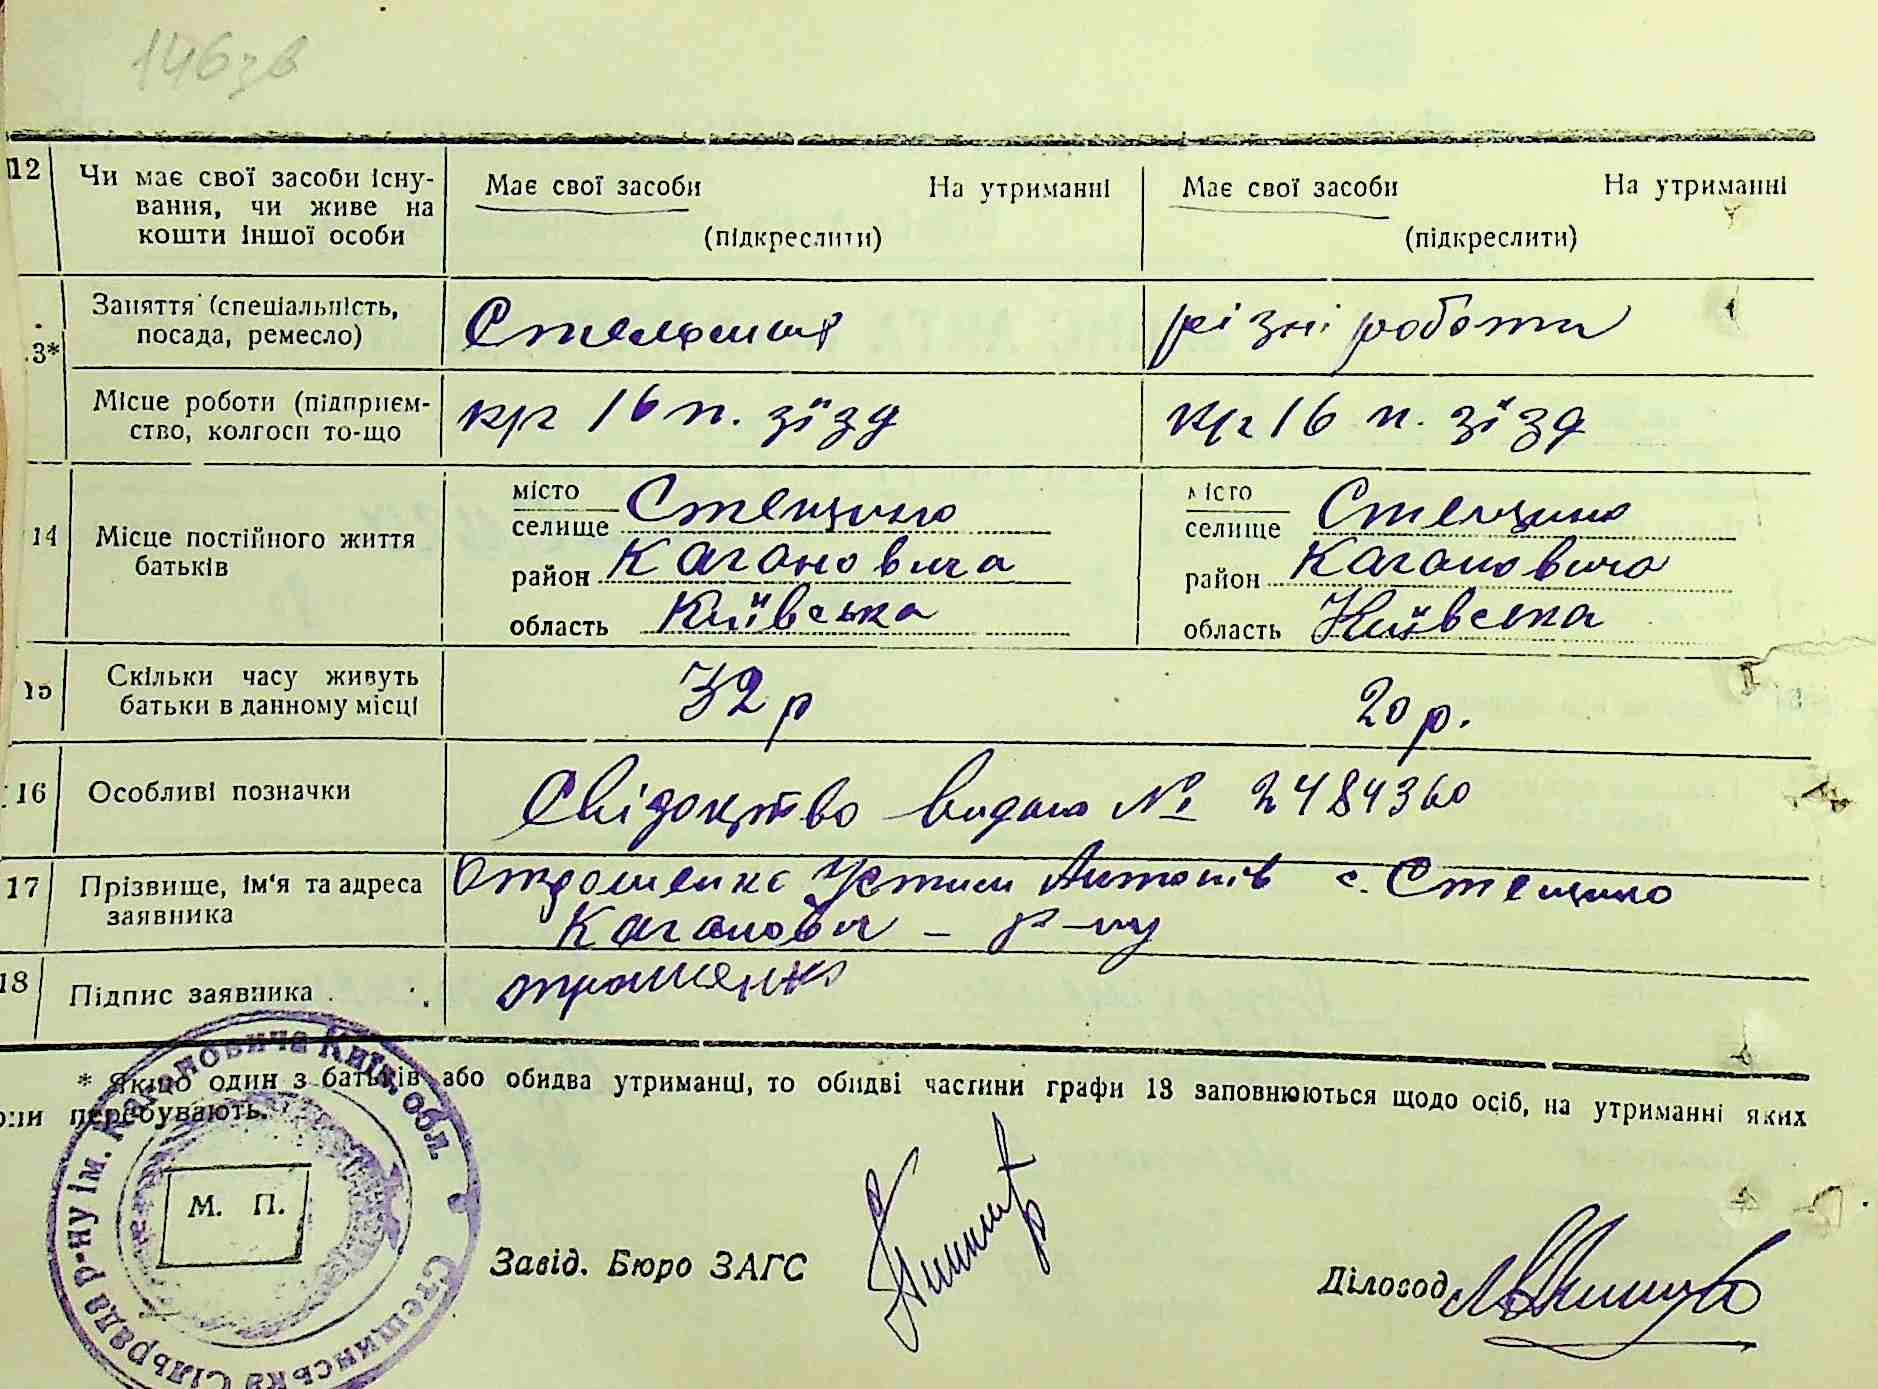 146зв
12 Чи має свої засоби існу-
вання, чи живе на
кошти іншої особи
Має свої засоби На утриманні
(підкреслити)
Має свої засоби На утриманні
(підкреслити)
3* Заняття (спеціальність,
посада, ремесло)
різні роботи
Місце роботи (підприєм-
ство, колгосп то-що
крг 16 п. зїзд
крг 16 п. зїзд
14 Місце постійного життя
батьків
місто
селище Стещино
район Кагановича
область Київська
місто
селище Стещино
район Кагановича
область Київська
15 Скільки часу живуть
батьки в данному місці
32 р
20 р.
16 Особливі позначки
Свідоцтво видано № 2484360
17 Прізвище, ім'я та адреса
заявника
Устим Антонів с. Стещино
Каганович - р-ну
18 Підпис заявника
* Якщо один з батьків або обидва утриманці, то обидві частини графи 13 заповнюються щодо осіб, на утриманні яких
они перебувають.
Стещинська Сільрада р-ну ім. Кагановича Київ. обл.
М. П.
Завід. Бюро ЗАГС
Діловод